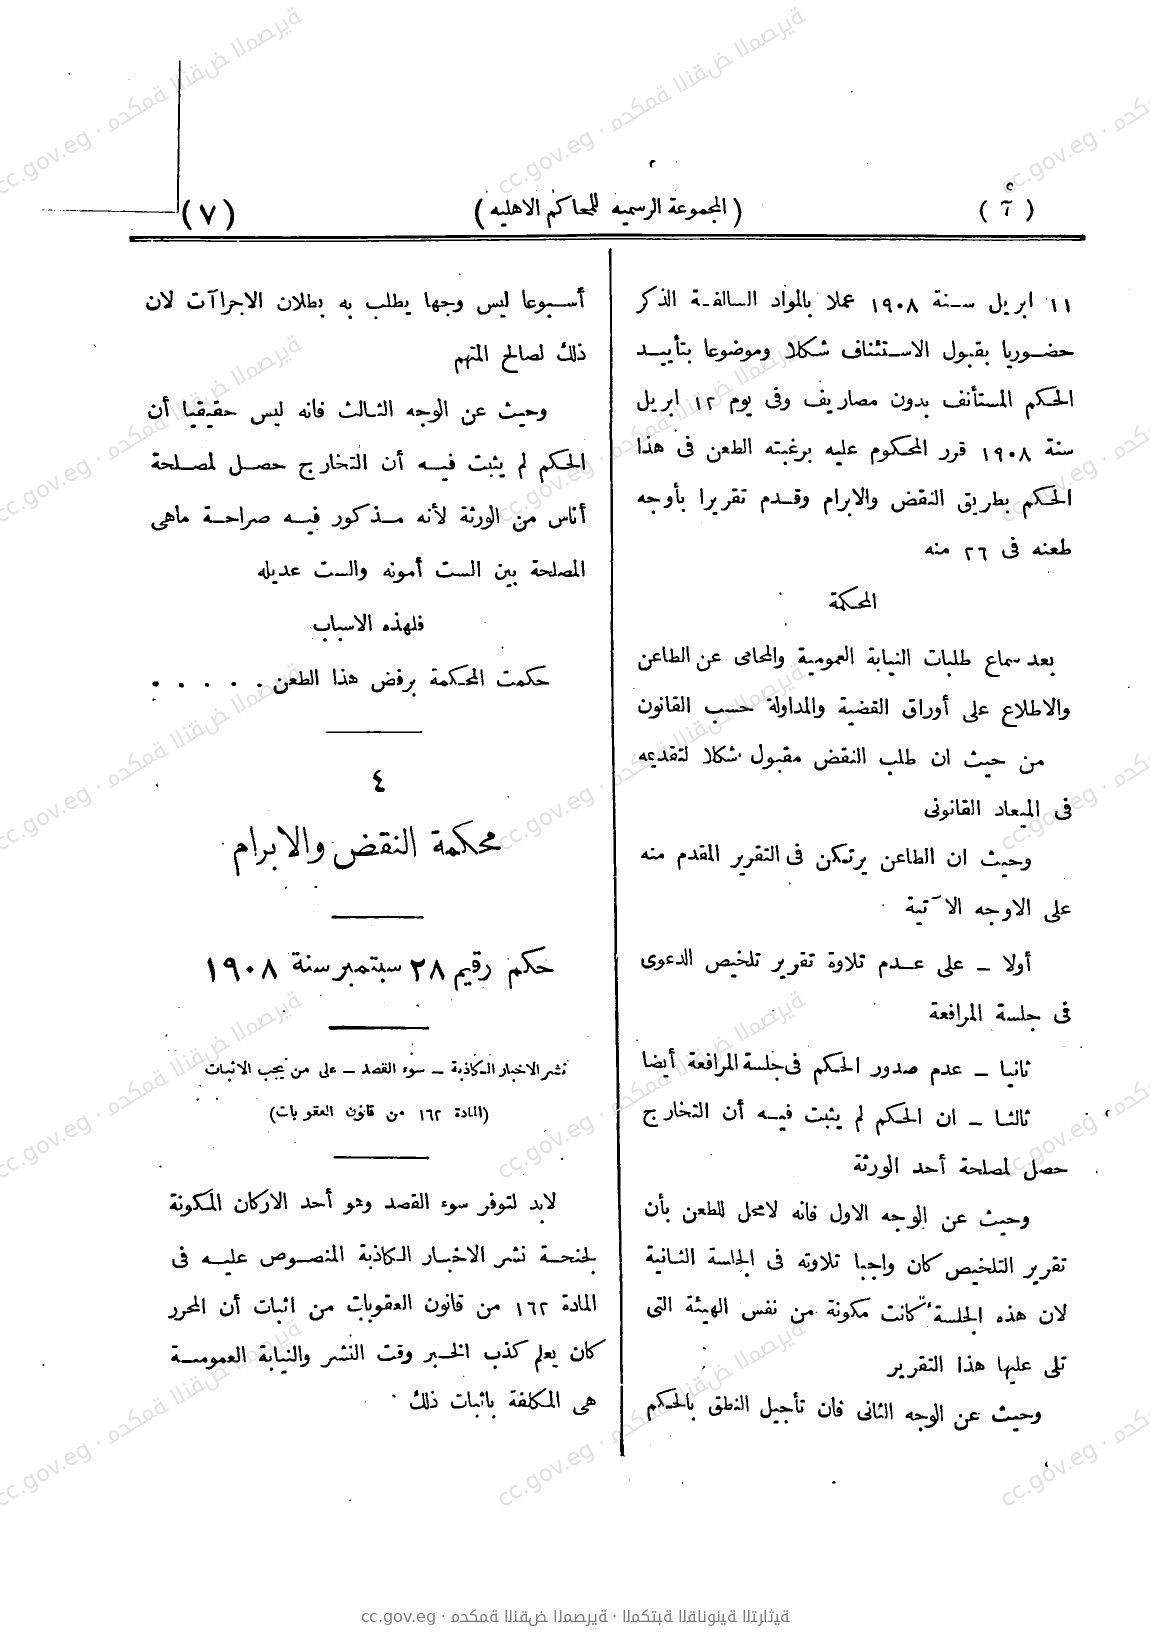 (٦)
(المجموعة الرسمية للمحاكم الاهليه)
(٧)
١١ ابريل سنة ١٩٠٨ عملا بالمواد السالفة الذكر
حضوريا بقبول الاستئناف شكلا وموضوعا بتأييد
الحكم المستأنف بدون مصاريف وفى يوم ١٢ ابريل
سنة ١٩٠٨ قرر المحكوم عليه برغبته الطعن فى هذا
الحكم بطريق النقض والابرام وقدم تقريرا بأوجه
طعنه فى ٢٦ منه
المحكمة
بعد سماع طلبات النيابة العمومية والمحامى عن الطاعن
والاطلاع على أوراق القضية والمداولة حسب القانون
من حيث ان طلب النقض مقبول شكلا لتقديمه
فى الميعاد القانونى
وحيث ان الطاعن يرتكن فى التقرير المقدم منه
على الاوجه الآتية
أولا ـ على عدم تلاوة تقرير تلخيص الدعوى
فى جلسة المرافعة
ثانيا ـ عدم صدور الحكم فى جلسة المرافعة أيضا
ثالثا ـ ان الحكم لم يثبت فيه أن التخارج
حصل لمصلحة أحد الورثة
وحيث عن الوجه الاول فانه لامحل للطعن بأن
تقرير التلخيص كان واجبا تلاوته فى الجلسة الثانية
لان هذه الجلسة كانت مكونة من نفس الهيئة التى
تلى عليها هذا التقرير
وحيث عن الوجه الثانى فان تأجيل النطق بالحكم
أسبوعا ليس وجها يطلب به بطلان الاجراآت لان
ذلك لصالح المتهم
وحيث عن الوجه الثالث فانه ليس حقيقيا أن
الحكم لم يثبت فيه أن التخارج حصل لمصلحة
أناس من الورثة لأنه مذكور فيه صراحة ماهى
المصلحة بين الست أمونه والست عديله
فلهذه الاسباب
حكمت المحكمة برفض هذا الطعن . . . . .
٤
محكمة النقض والابرام
حكم رقيم ٢٨ سبتمبر سنة ١٩٠٨
نشر الاخبار الكاذبة ـ سوء القصد ـ على من يجب الاثبات
(المادة ١٦٢ من قانون العقوبات)
لابد لتوفر سوء القصد وهو أحد الاركان المكونة
لجنحة نشر الاخبار الكاذبة المنصوص عليه فى
المادة ١٦٢ من قانون العقوبات من اثبات أن المحرر
كان يعلم كذب الخبر وقت النشر والنيابة العمومية
هى المكلفة باثبات ذلك
cc.gov.eg · محكمة النقض المصرية · المكتبة القانونية التراثية